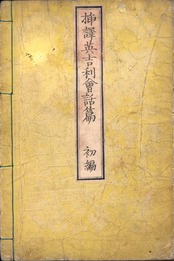 挿譯英吉利會話篇 初編